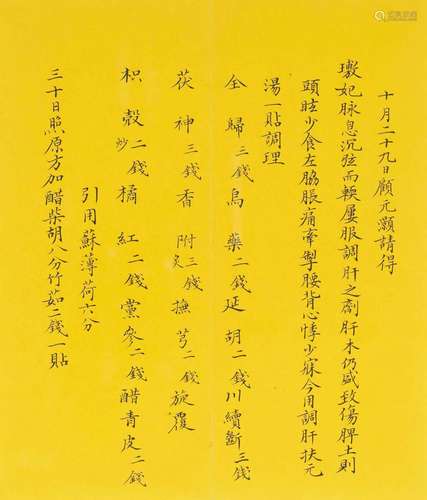 十月二十九日顧元灝請得
璷妃脉息沉弦而輭屢服調肝之劑肝木仍盛致傷脾土則
頭眩少食左脇脹痛牽掣腰背心悸少寐今用調肝扶元
湯一貼調理
全歸三錢烏藥二錢延胡二錢川續斷三錢
茯神三錢香附三錢炙撫芎二錢旋覆
枳殼二錢炒橘紅二錢黨參二錢醋青皮二錢
引用蘇薄荷六分
三十日照原方加醋柴胡八分竹茹二錢一貼